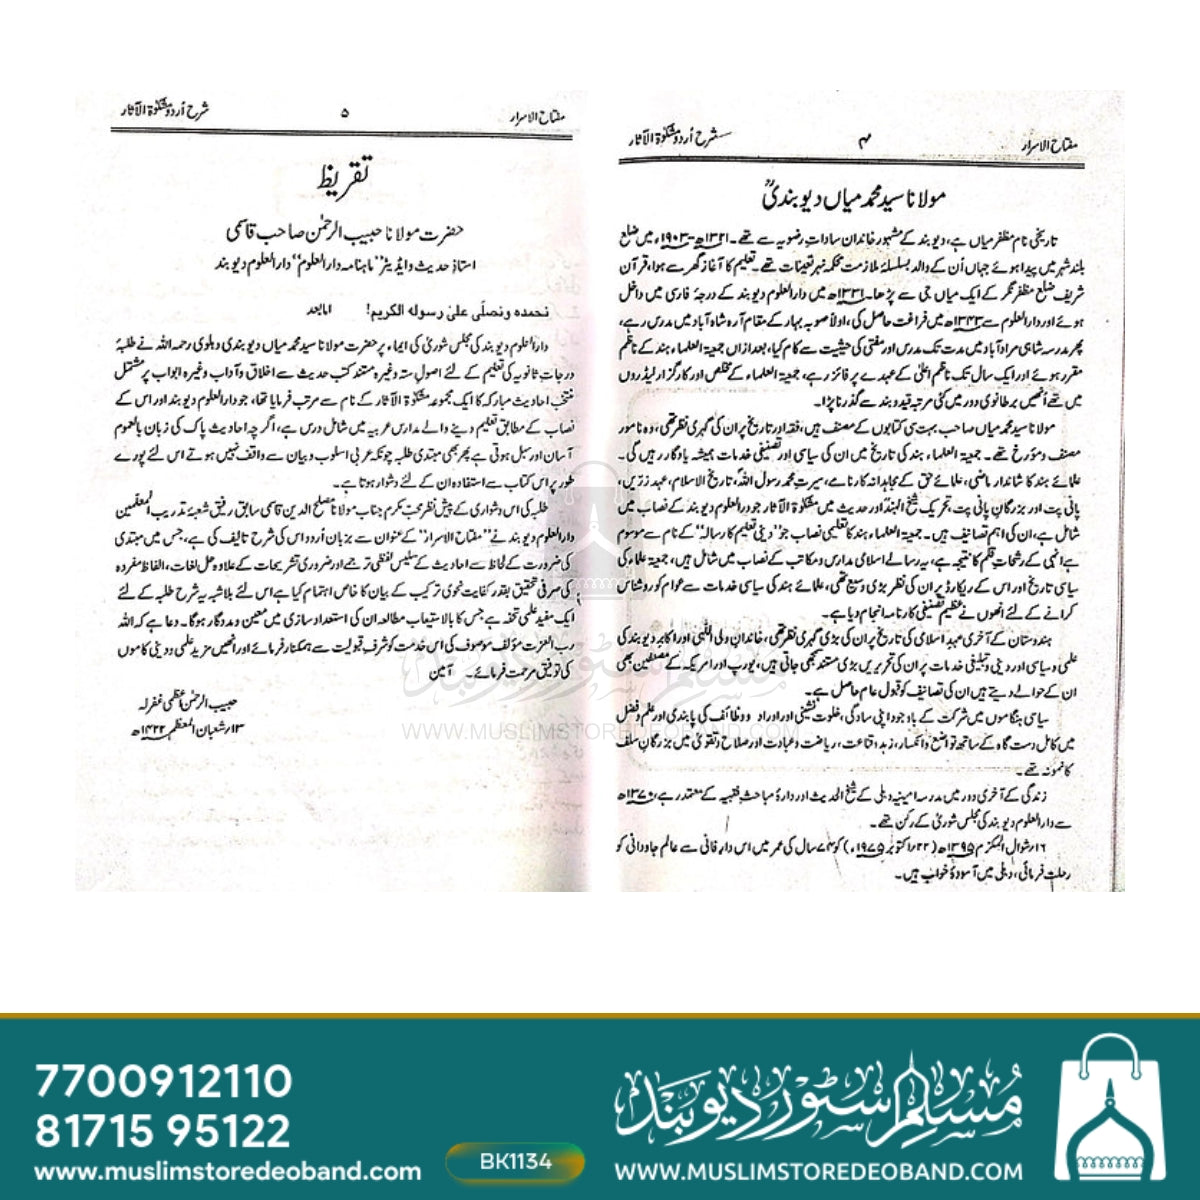 مفتاح الاسرار ۴ شرح اُردو مشکوٰۃ الآثار
مولانا سید محمد میاں دیوبندیؒ
تاریخی نام مظفر میاں ہے، دیوبند کے مشہور خاندان ساداتِ رضویہ سے تھے۔ ۱۳۲۱ھ-۱۹۰۳ء میں ضلع
بلند شہر میں پیدا ہوئے جہاں اُن کے والد بسلسلۂ ملازمت محکمہ نہر تعینات تھے۔ تعلیم کا آغاز گھر سے ہوا، قرآن
شریف ضلع مظفر نگر کے ایک میاں جی سے پڑھا۔ ۱۳۳۱ھ میں دارالعلوم دیوبند کے درجۂ فارسی میں داخل
ہوئے اور دارالعلوم سے ۱۳۴۳ھ میں فراغت حاصل کی، اولاً صوبہ بہار کے مقام آرہ شاہ آباد میں مدرس رہے،
پھر مدرسہ شاہی مراد آباد میں مدت تک مدرس اور مفتی کی حیثیت سے کام کیا، بعد ازاں جمعیۃ العلماء ہند کے ناظم
مقرر ہوئے اور ایک سال تک ناظم اعلیٰ کے عہدے پر فائز رہے، جمعیۃ العلماء کے مخلص اور کارگزار لیڈروں
میں تھے اُنھیں برطانوی دور میں کئی مرتبہ قید و بند سے گذرنا پڑا۔
مولانا سید محمد میاں صاحب بہت سی کتابوں کے مصنف ہیں، فقہ اور تاریخ پر ان کی گہری نظر تھی، وہ نامور
مصنف و مؤرخ تھے۔ جمعیۃ العلماء ہند کی تاریخ میں ان کی سیاسی اور تصنیفی خدمات ہمیشہ یادگار رہیں گی۔
علمائے ہند کا شاندار ماضی، علمائے حق کے مجاہدانہ کارنامے، سیرت محمد رسول اللہؐ، تاریخ الاسلام، عہد زرّیں،
پانی پت اور بزرگانِ پانی پت، تحریک شیخ الہندؒ اور حدیث میں مشکوٰۃ الآثار جو دارالعلوم دیوبند کے نصاب میں
شامل ہے، ان کی اہم تصانیف ہیں۔ جمعیۃ العلماء ہند کا تعلیمی نصاب جو ”دینی تعلیم کا رسالہ“ کے نام سے موسوم
ہے انہی کے رشحاتِ قلم کا نتیجہ ہے، یہ رسالے اسلامی مدارس و مکاتب کے نصاب میں شامل ہیں، جمعیۃ علماء کی
سیاسی تاریخ اور اس کے ریکارڈ پر ان کی نظر بڑی وسیع تھی، علمائے ہند کی سیاسی خدمات سے عوام کو روشناس
کرانے کے لئے انھوں نے عظیم تصنیفی کارنامہ انجام دیا ہے۔
ہندوستان کے آخری عہدِ اسلامی کی تاریخ پر ان کی بڑی گہری نظر تھی، خاندانِ ولی اللّٰہی اور اکابر دیوبند کی
علمی و سیاسی اور دینی و تبلیغی خدمات پر ان کی تحریریں بڑی مستند سمجھی جاتی ہیں، یورپ اور امریکہ کے مصنفین بھی
ان کے حوالے دیتے ہیں ان کی تصانیف کو قبولِ عام حاصل ہے۔
سیاسی ہنگاموں میں شرکت کے باوجود اپنی سادگی، خلوت نشینی اور اوراد و وظائف کی پابندی اور علم و فضل
میں کامل دست گاہ کے ساتھ تواضع و انکسار، زہد و قناعت، ریاضت و عبادت اور صلاح و تقویٰ میں بزرگانِ سلف
کا نمونہ تھے۔
زندگی کے آخری دور میں مدرسہ امینیہ دہلی کے شیخ الحدیث اور ادارۂ مباحثِ فقہیہ کے معتمد رہے، ۱۳۷۰ھ
سے دارالعلوم دیوبند کی مجلس شوریٰ کے رکن تھے۔
۱۶؍ شوال المکرم ۱۳۹۵ھ (۲۲؍ اکتوبر ۱۹۷۵ء) کو ۷۴ سال کی عمر میں اس دارِ فانی سے عالمِ جاودانی کو
رحلت فرمائی، دہلی میں آسودۂ خواب ہیں۔
مفتاح الاسرار ۵ شرح اُردو مشکوٰۃ الآثار
تقریظ
حضرت مولانا حبیب الرحمٰن صاحب قاسمی
استاذِ حدیث و ایڈیٹر ”ماہنامہ دارالعلوم“ دارالعلوم دیوبند
نحمدہ ونصلّی علیٰ رسولہ الکریم! امابعد
دارالعلوم دیوبند کی مجلس شوریٰ کی ایماء پر حضرت مولانا سید محمد میاں دیوبندی و دہلوی رحمہ اللہ نے طلبۂ
درجاتِ ثانویہ کی تعلیم کے لئے اصولِ ستہ وغیرہ مستند کتب حدیث سے اخلاق و آداب وغیرہ ابواب پر مشتمل
منتخب احادیث مبارکہ کا ایک مجموعہ مشکوٰۃ الآثار کے نام سے مرتب فرمایا تھا، جو دارالعلوم دیوبند اور اس کے
نصاب کے مطابق تعلیم دینے والے مدارس عربیہ میں شامل درس ہے، اگرچہ احادیث پاک کی زبان بالعموم
آسان اور سہل ہوتی ہے پھر بھی مبتدی طلبہ چونکہ عربی اسلوب و بیان سے واقف نہیں ہوتے اس لئے پورے
طور پر اس کتاب سے استفادہ ان کے لئے دشوار ہوتا ہے۔
طلبہ کی اس دشواری کے پیش نظر محبّ مکرم جناب مولانا مصلح الدین قاسمی سابق رفیق شعبۂ تدریب المعلمین
دارالعلوم دیوبند نے ”مفتاح الاسرار“ کے عنوان سے بزبان اُردو اس کی شرح تالیف کی ہے، جس میں مبتدی
کی ضرورت کے لحاظ سے احادیث کے سلیس لفظی ترجمے اور ضروری تشریحات کے علاوہ حل لغات، الفاظ مفردہ
کی صرفی تحقیق بقدر کفایت نحوی ترکیب کے بیان کا خاص اہتمام کیا ہے اس لئے بلاشبہ یہ شرح طلبہ کے لئے
ایک مفید علمی تحفہ ہے جس کا بالاستیعاب مطالعہ ان کی استعداد سازی میں معین و مددگار ہوگا۔ دعا ہے کہ اللہ
رب العزت مؤلف موصوف کی اس خدمت کو شرفِ قبولیت سے ہمکنار فرمائے اور انھیں مزید علمی و دینی کاموں
کی توفیق مرحمت فرمائے۔ آمین
حبیب الرحمٰن اعظمی غفرلہ
۱۳؍ شعبان المعظم ۱۴۲۲ھ
مسلم سٹور دیوبند
WWW.MUSLIMSTOREDEOBAND.COM
7700912110
81715 95122
www.muslimstoredeoband.com
BK1134
مسلم سٹور دیوبند
WWW.MUSLIMSTOREDEOBAND.COM